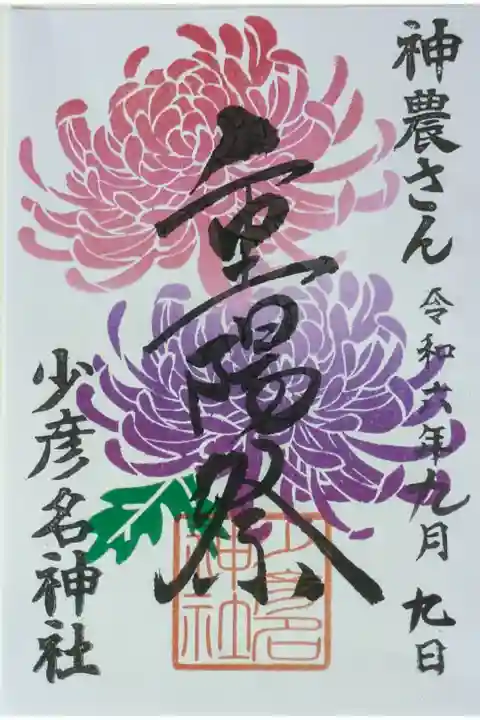 神農さん
令和六年九月九日
重陽祭
少彦名神社
少彦名神社